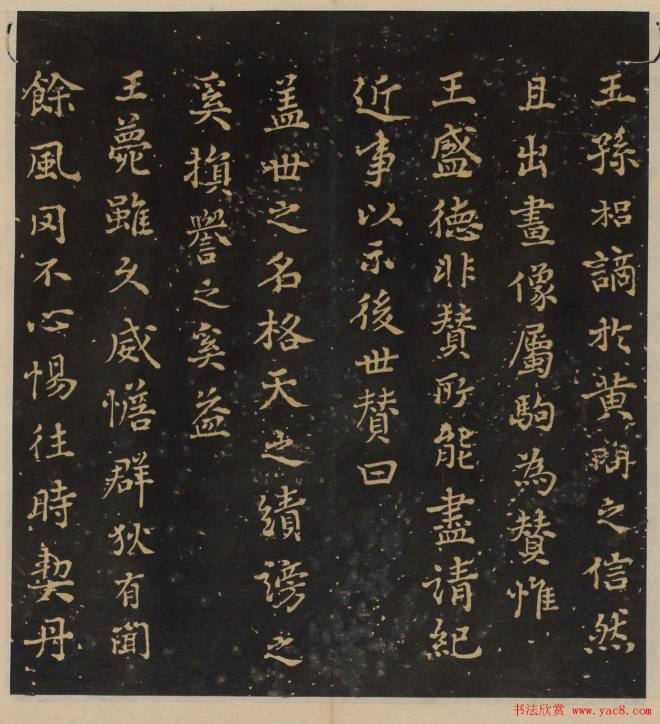 王孫謫於黄之信然
且出畫像屬駒為賛惟
王盛德非賛所能盡請紀
近事以示後世賛曰
盖世之名格天之績謗之
奚損譽之奚益
王薨雖久威憺群狄有聞
餘風罔不心惕往時契丹
书法欣赏 www.yac8.com